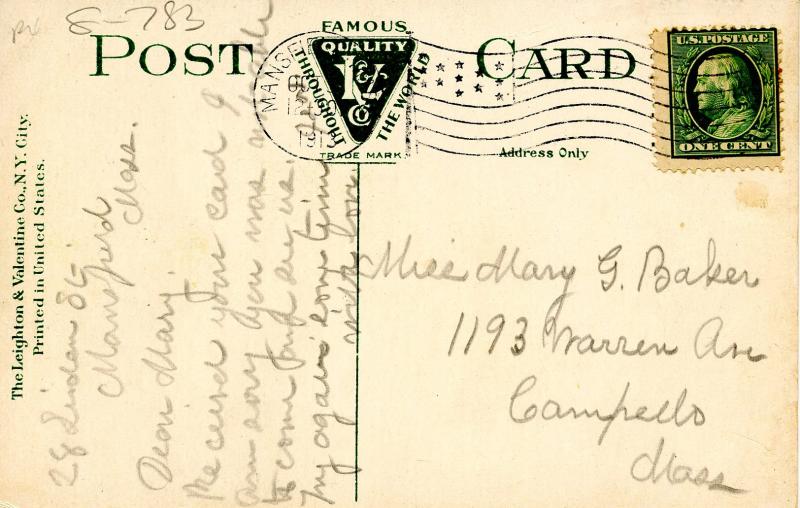 8-783
POST CARD
FAMOUS
QUALITY
THROUGHOUT THE WORLD
L&V Co
TRADE MARK
MANSF
1913
U.S. POSTAGE
ONE CENT
Address Only
The Leighton & Valentine Co., N.Y. City.
Printed in United States.
28 Linden St
Mansfield
Mass.
Dear Mary.
Received your card &
am sory you was not able
to come and see us.
Try again some time
with love
Miss Mary G. Baker
1193 Warren Ave
Campello
Mass